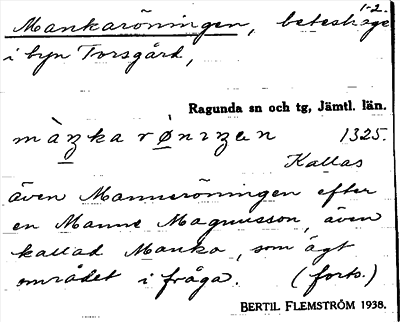 1-2.
Mankaröningen, beteshage
i byn Torsgård,
Ragunda sn och tg, Jämtl. län.
1325.
Kallas
även Manneröningen efter
en Manne Magnusson, även
kallad Manka, som ägt
området i fråga. (forts.)
BERTIL FLEMSTRÖM 1938.